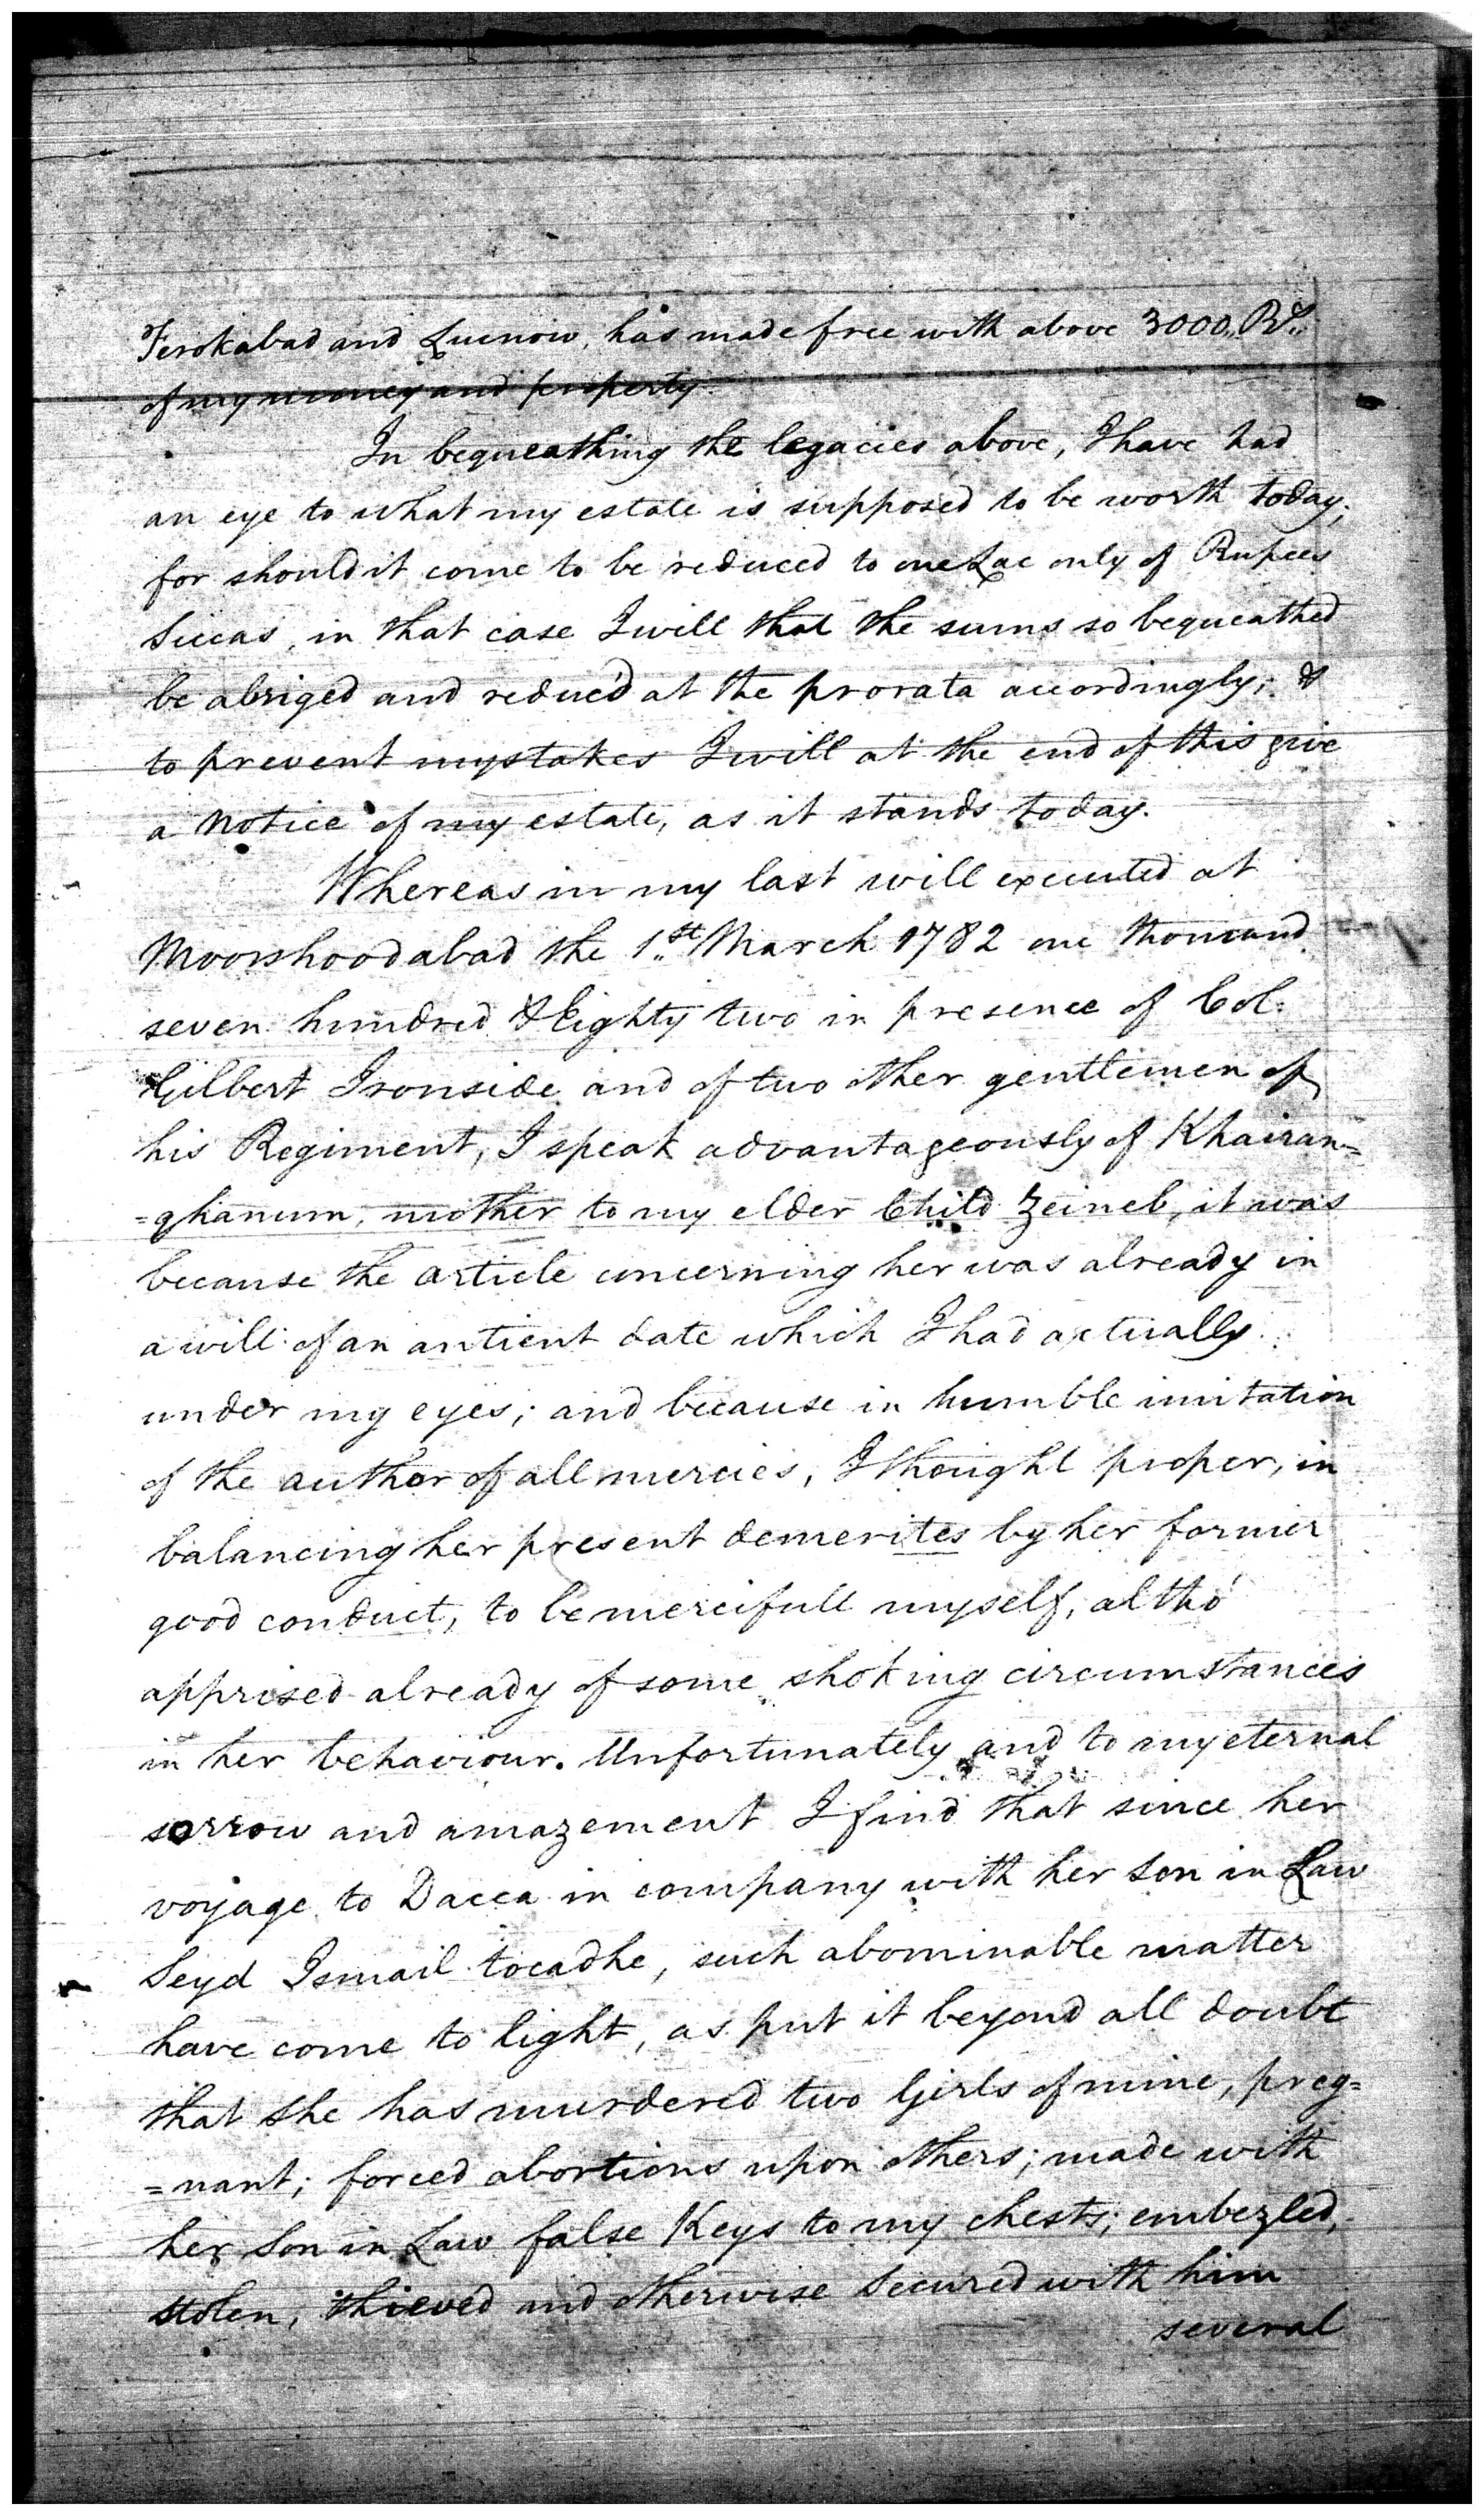 Ferokabad and Lucnow, has made free with above 3000,, Rs..
of my money and property.
In bequeathing the legacies above, I have had
an eye to what my estate is supposed to be worth today;
for should it come to be reduced to one Lac only of Rupees
Siccas, in that case I will that the sums so bequeathed
be abriged and reduc'd at the prorata accordingly; &
to prevent mystakes I will at the end of this give
a notice of my estate, as it stands today.
Whereas in my last will executed at
Moorshoodabad the 1st March 1782 one thousand
seven hundred & Eighty two in presence of Col:
Gilbert Ironside and of two other gentlemen of
his Regiment, I speak advantageously of Khairan=
=ghanum, mother to my elder Child Zeineb, it was
because the article concerning her was already in
a will of an antient date which I had actually
under my eyes; and because in humble imitation
of the author of all mercies, I thought proper, in
balancing her present demerites by her former
good conduct, to be mercifull myself, altho'
apprised already of some shoking circumstances
in her behaviour. Unfortunately and to my eternal
sorrow and amazement I find that since her
voyage to Dacca in company with her son in Law
Seyd Ismail tocadhe, such abominable matter
have come to light, as put it beyond all doubt
that she has murdered two Girls of mine, preg=
=nant; forced abortions upon others; made with
her Son in Law false Keys to my chests; embezled,
stolen, thieved and otherwise Secured with him
several